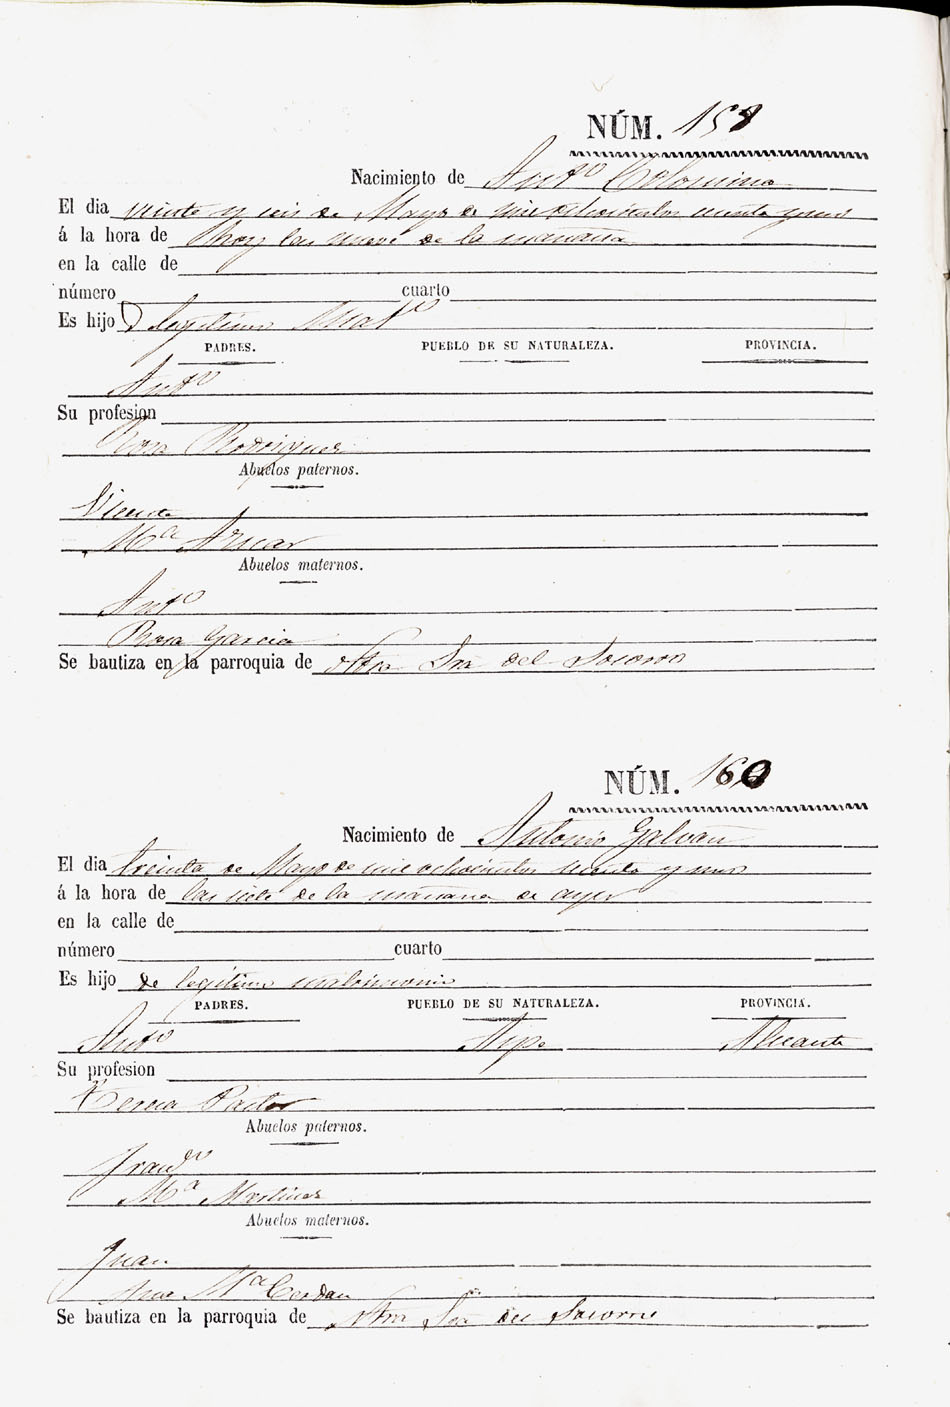 NÚM. 158
Nacimiento de Antº Colomina
El dia veinte y seis de Mayo de mil ochocientos sesenta y uno
á la hora de hoy las nueve de la mañana
en la calle de
número cuarto
Es hijo D legitimo Matº
PADRES. PUEBLO DE SU NATURALEZA. PROVINCIA.
Antº
Su profesion
Rosa Rodriguez
Abuelos paternos.
Vicente
Mª Aznar
Abuelos maternos.
Antº
Rosa Garcia
Se bautiza en la parroquia de Ntra Sra del Socorro
NÚM. 160
Nacimiento de Antonio Galvañ
El dia treinta de Mayo de mil ochocientos sesenta y uno
á la hora de las siete de la mañana de ayer
en la calle de
número cuarto
Es hijo de legitimo matrimonio
PADRES. PUEBLO DE SU NATURALEZA. PROVINCIA.
Antº Aspe Alicante
Su profesion
Teresa Pastor
Abuelos paternos.
Francº
Mª Martinez
Abuelos maternos.
Juan
Mª Cerdan
Se bautiza en la parroquia de Ntra Sra del Socorro